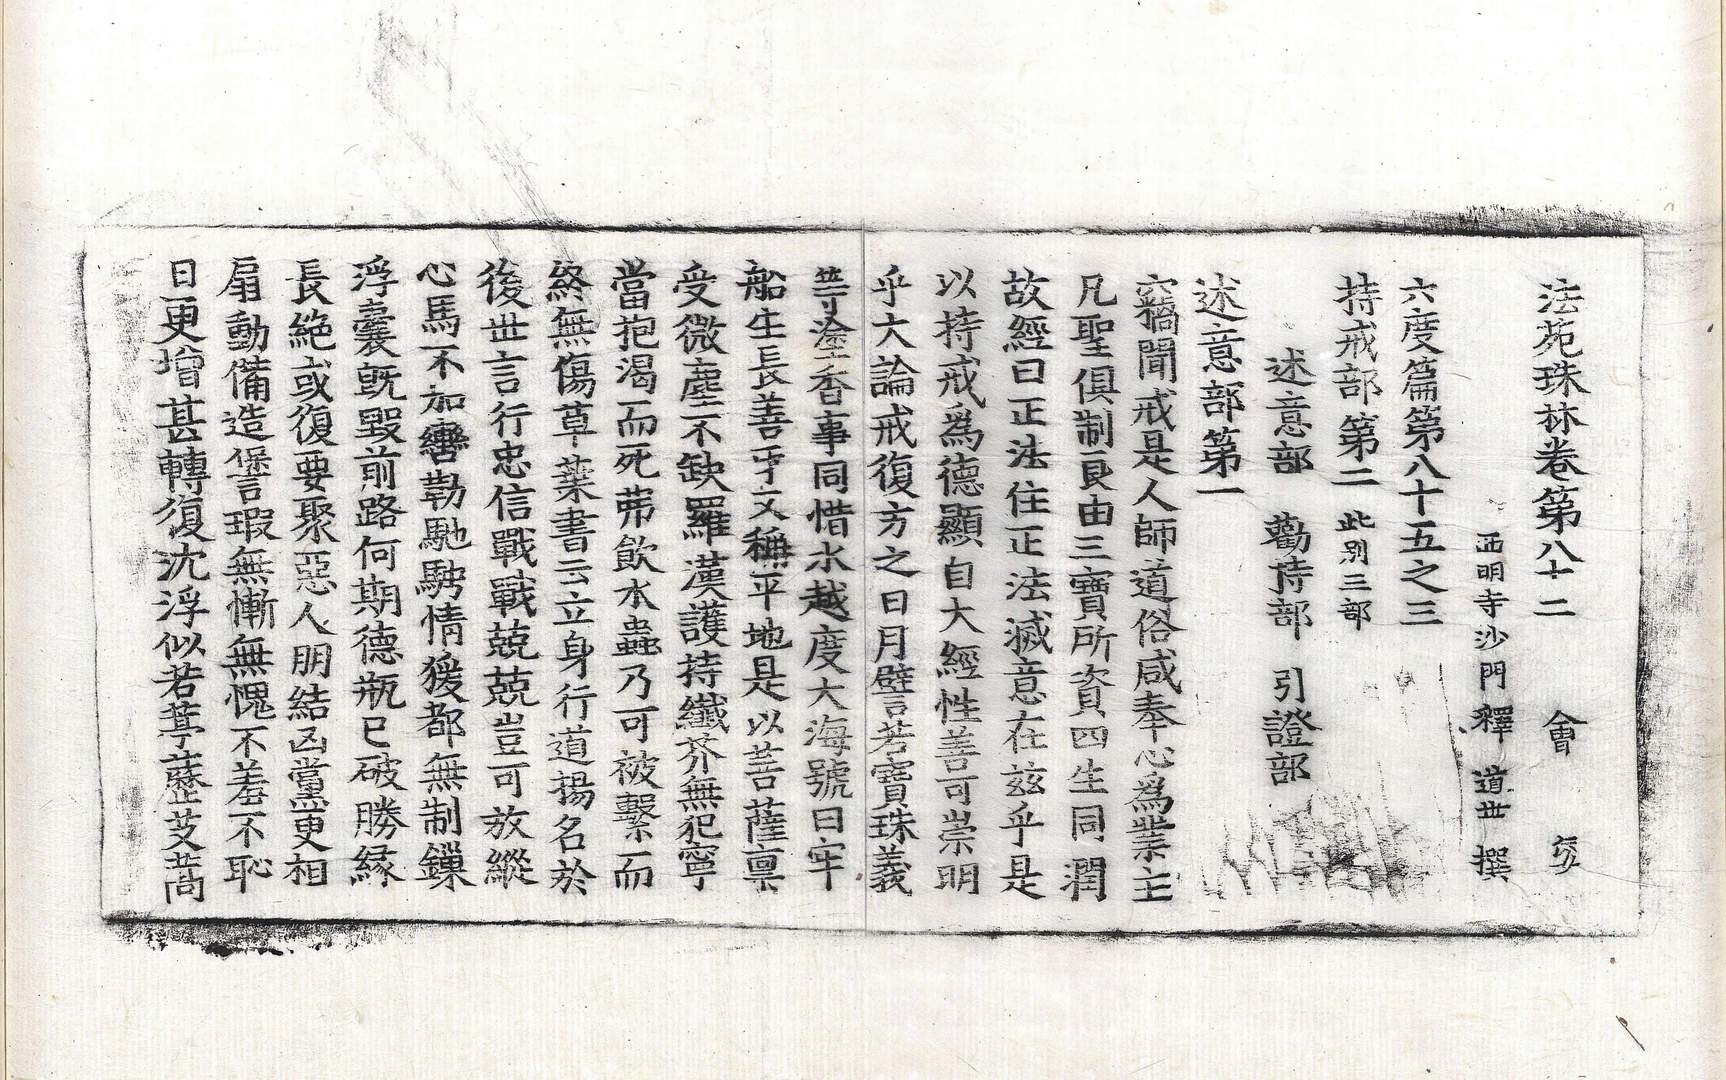 法苑珠林卷第八十二　會
西明寺沙門釋　道世　撰
六度篇第八十五之三
持戒部第二　此別三部
述意部　勸持部　引證部
述意部第一
竊聞戒是人師道俗咸奉心爲業主
凡聖俱制良由三寶所資四生同潤
故經曰正法住正法滅意在茲乎是
以持戒爲德顯自大經性善可崇明
乎大論戒復方之日月譬若寶珠義
等塗香事同惜水越度大海號曰牢
船生長善牙又稱平地是以菩薩稟
受微塵不缺羅漢護持纖芥無犯寧
當抱渴而死弗飲水蟲乃可被繫而
終無傷草葉書云立身行道揚名於
後世言行忠信戰戰兢兢豈可放縱
心馬不加轡勒馳騁情猨都無制鏁
浮囊旣毀前路何期德瓶已破勝緣
長絕或復要聚惡人朋結凶黨更相
扇動備造堡訾瑕無慚無愧不羞不恥
日更增甚轉復沈浮似若葶藶艾蒿